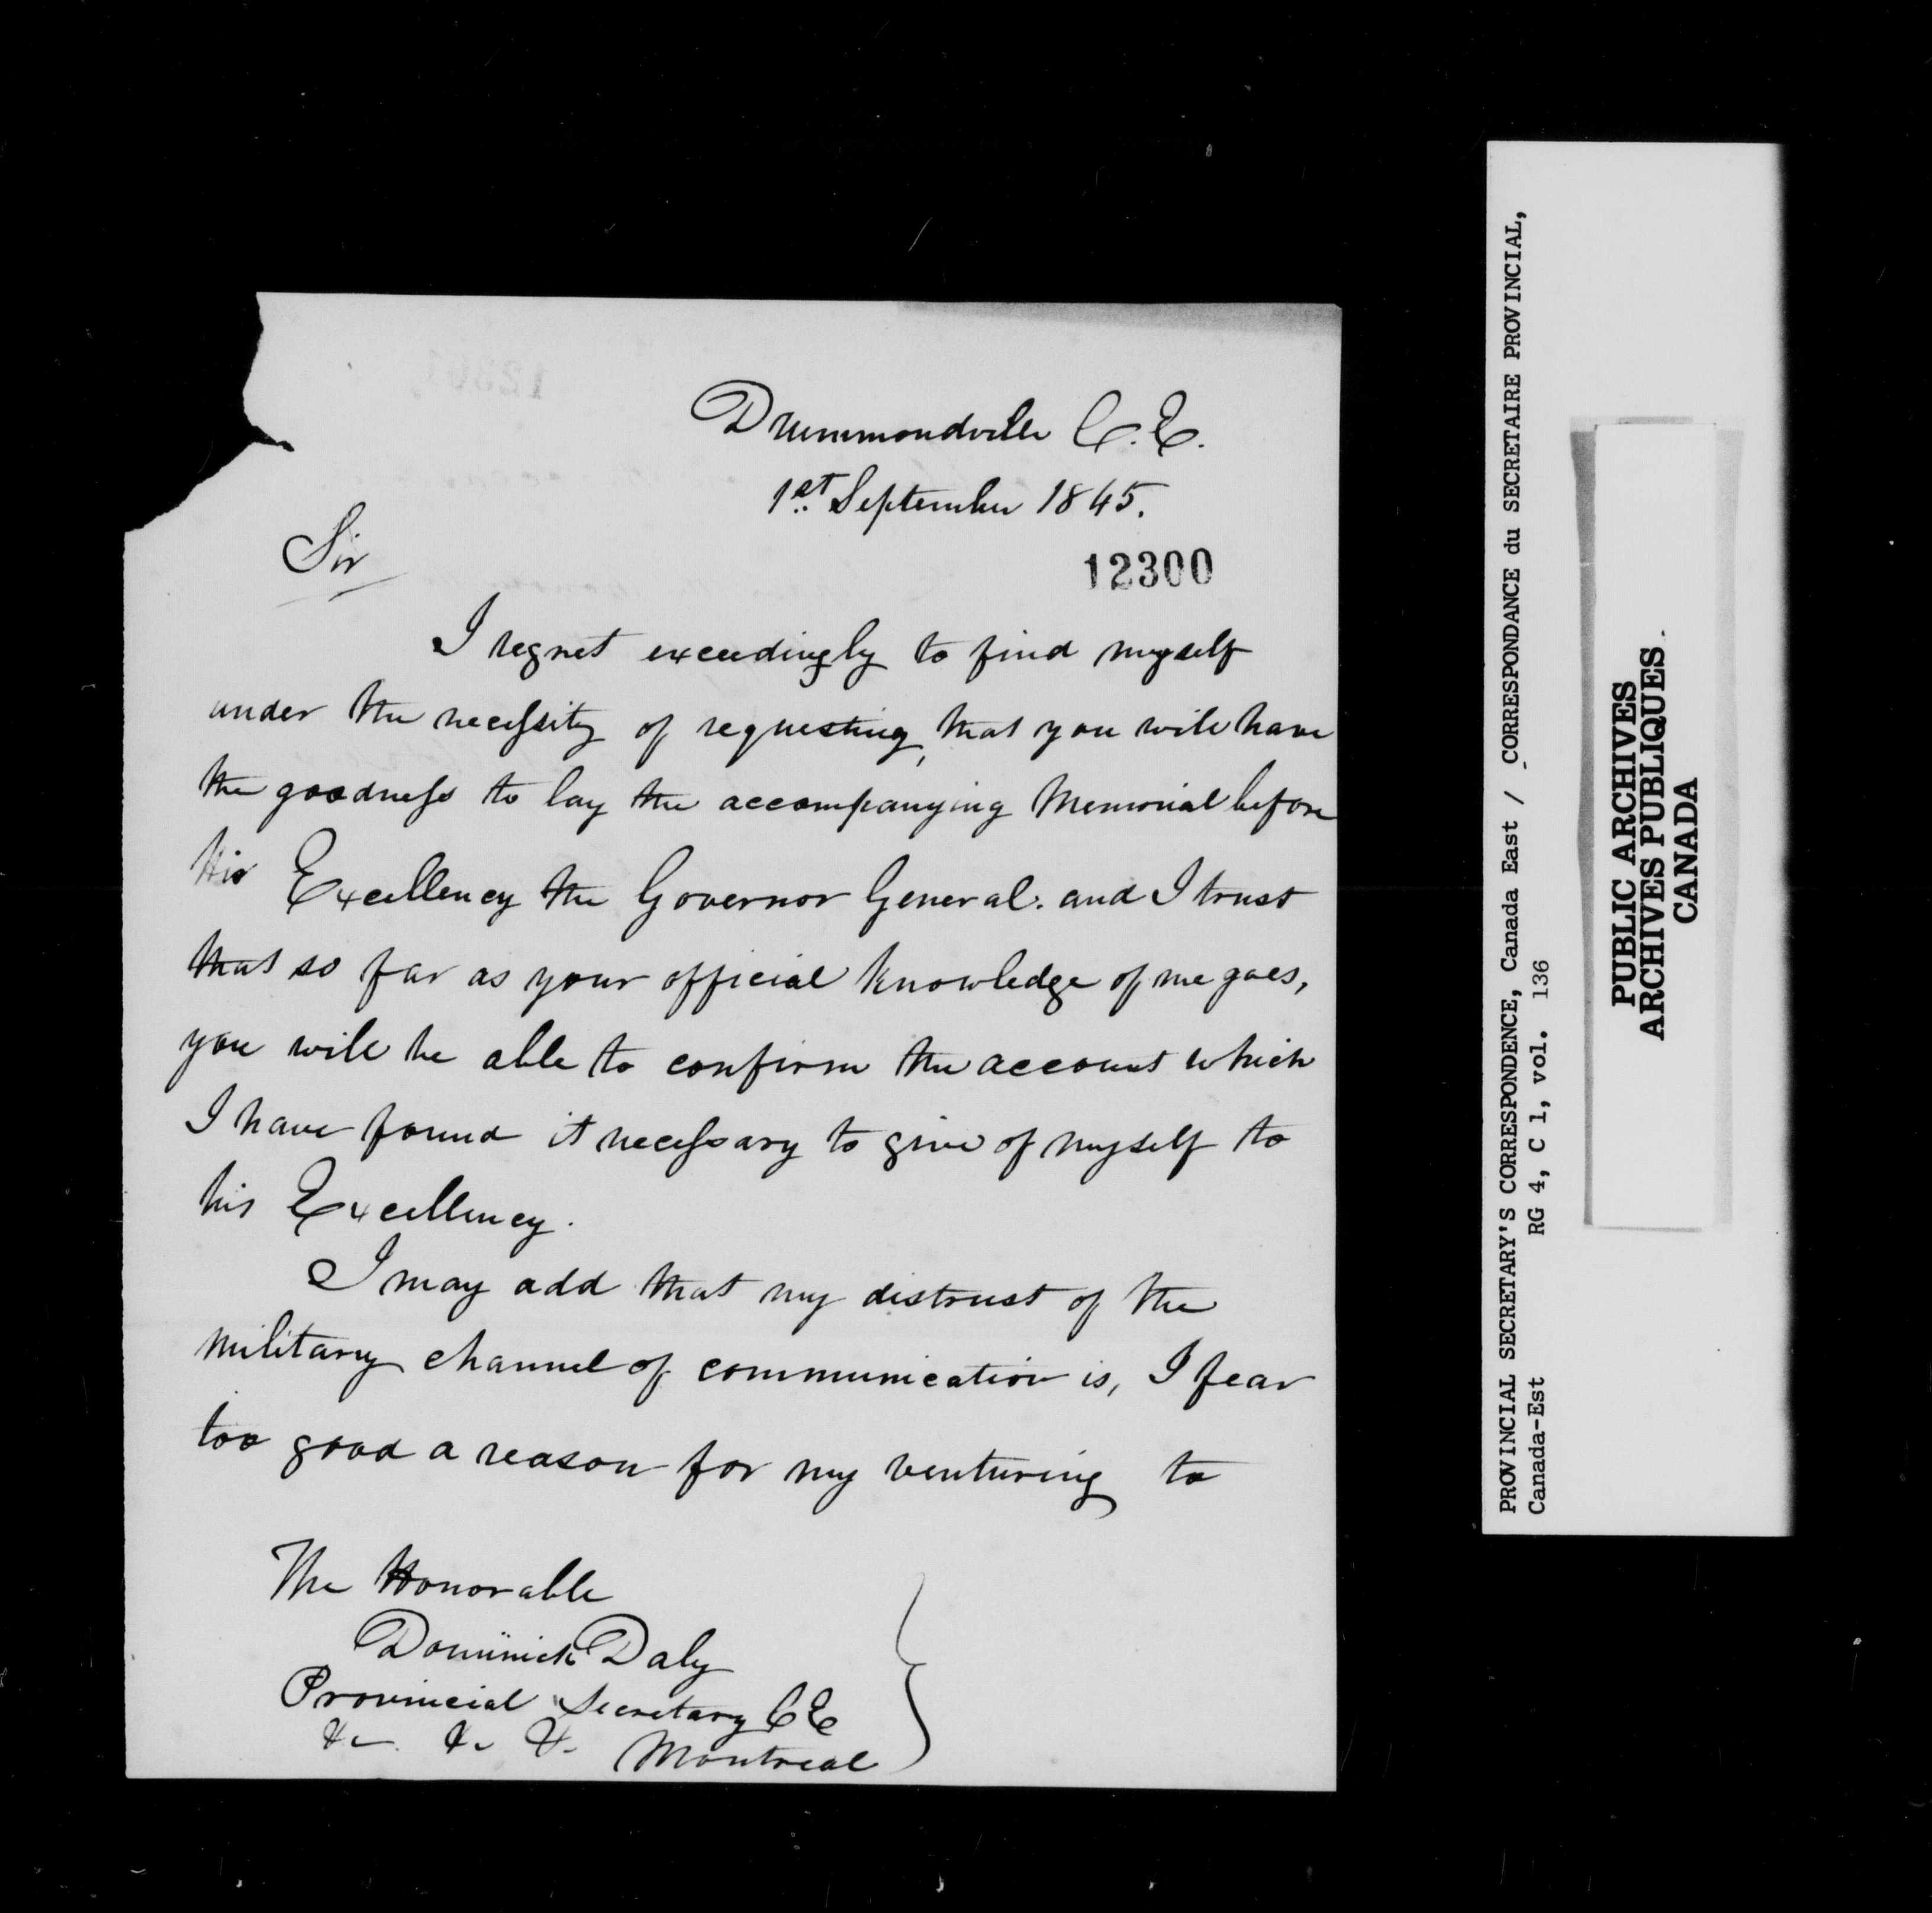 Drummondville C.E.
1st September 1845.
12300
Sir
I regret exceedingly to find myself
under the necessity of requesting, that you will have
the goodness to lay the accompanying Memorial before
His Excellency the Governor General. and I trust
that so far as your official knowledge of me goes,
you will be able to confirm the account which
I have found it necessary to give of myself to
his Excellency.
I may add that my distrust of the
military channel of communication is, I fear
too good a reason for my venturing to
The Honorable
Dominick Daly
Provincial Secretary CE
&c &c &c Montreal
PROVINCIAL SECRETARY'S CORRESPONDENCE, Canada East / CORRESPONDANCE du SECRETAIRE PROVINCIAL,
Canada-Est RG 4, C 1, vol. 136
PUBLIC ARCHIVES
ARCHIVES PUBLIQUES
CANADA